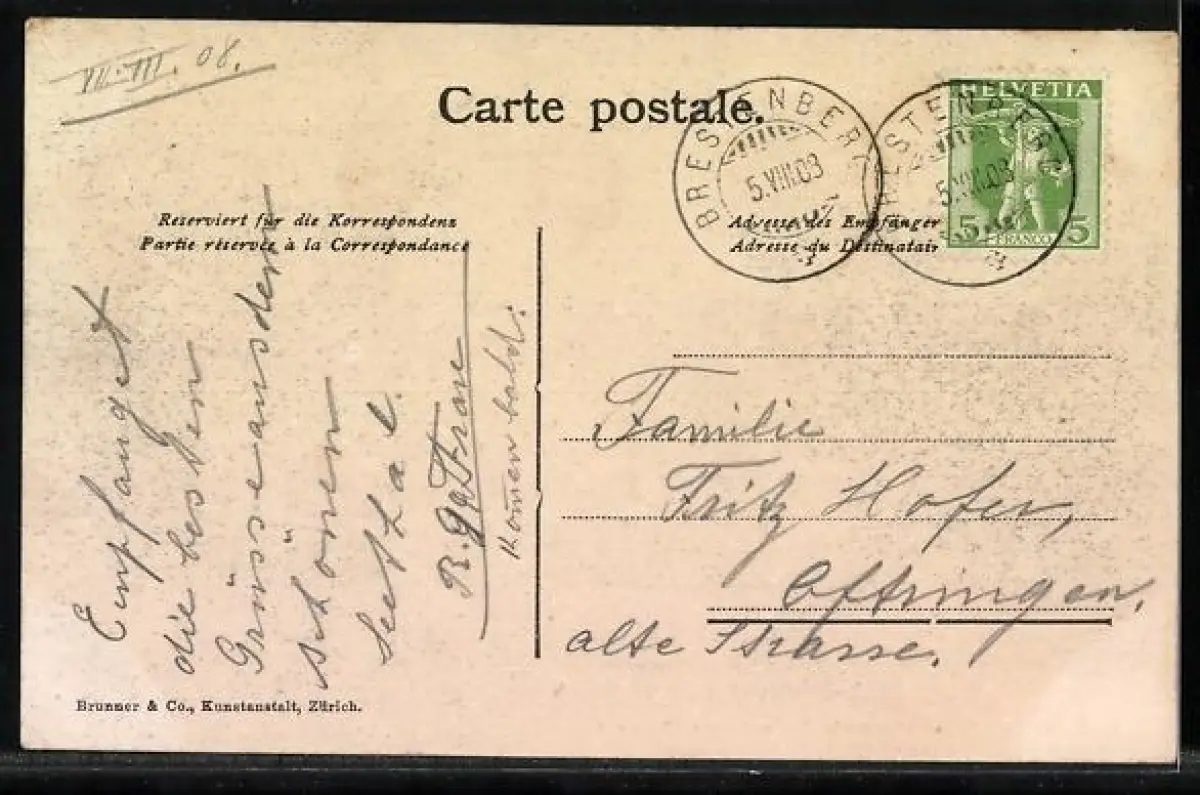 08.
Carte postale.
BRESTENBERG
5.VIII.08
BRESTENBERG
5.VIII.08
HELVETIA
5 FRANCO 5
Reserviert für die Korrespondenz
Partie réservée à la Correspondance
Adresse des Empfänger
Adresse du Destinatair
Empfanget
die besten
Grüsse aus dem
schönen
Seetal.
komen bald.
Familie
Fritz Hofer,
Oftringen.
alte Strasse.
Brunner & Co., Kunstanstalt, Zürich.